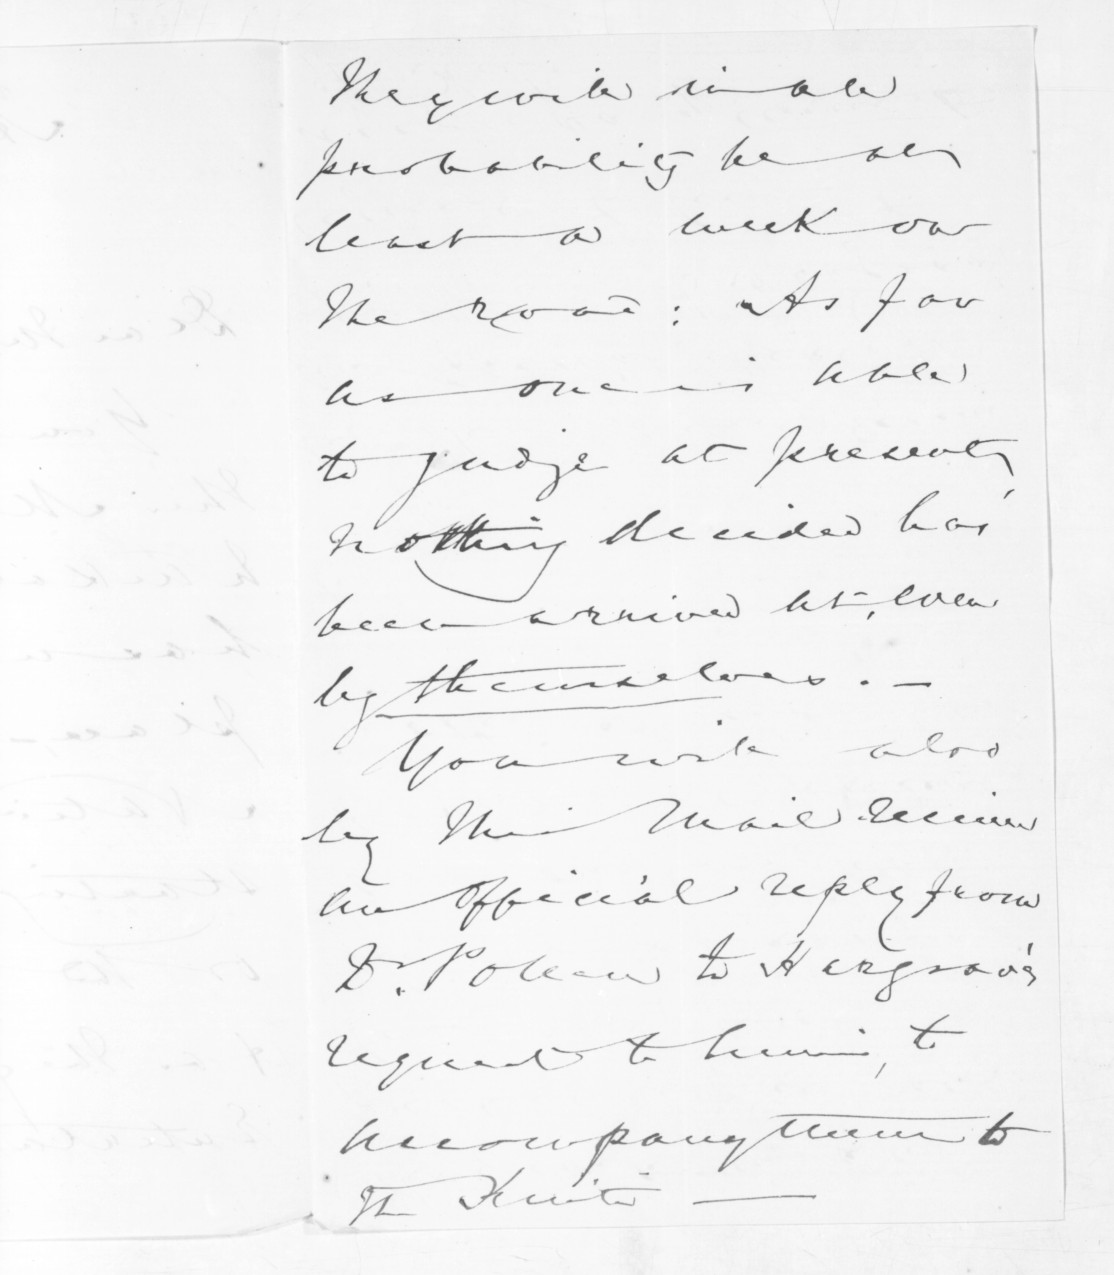 They will in all
probability be at
least a week on
the road: As far
as one is able
to judge at present,
nothing decided has
been arrived at, even
by themselves. —
You will also
by this Mail receive
an official reply from
Dr. Pollen to Hargrave's
request to him, to
accompany them to
the Kuiti —